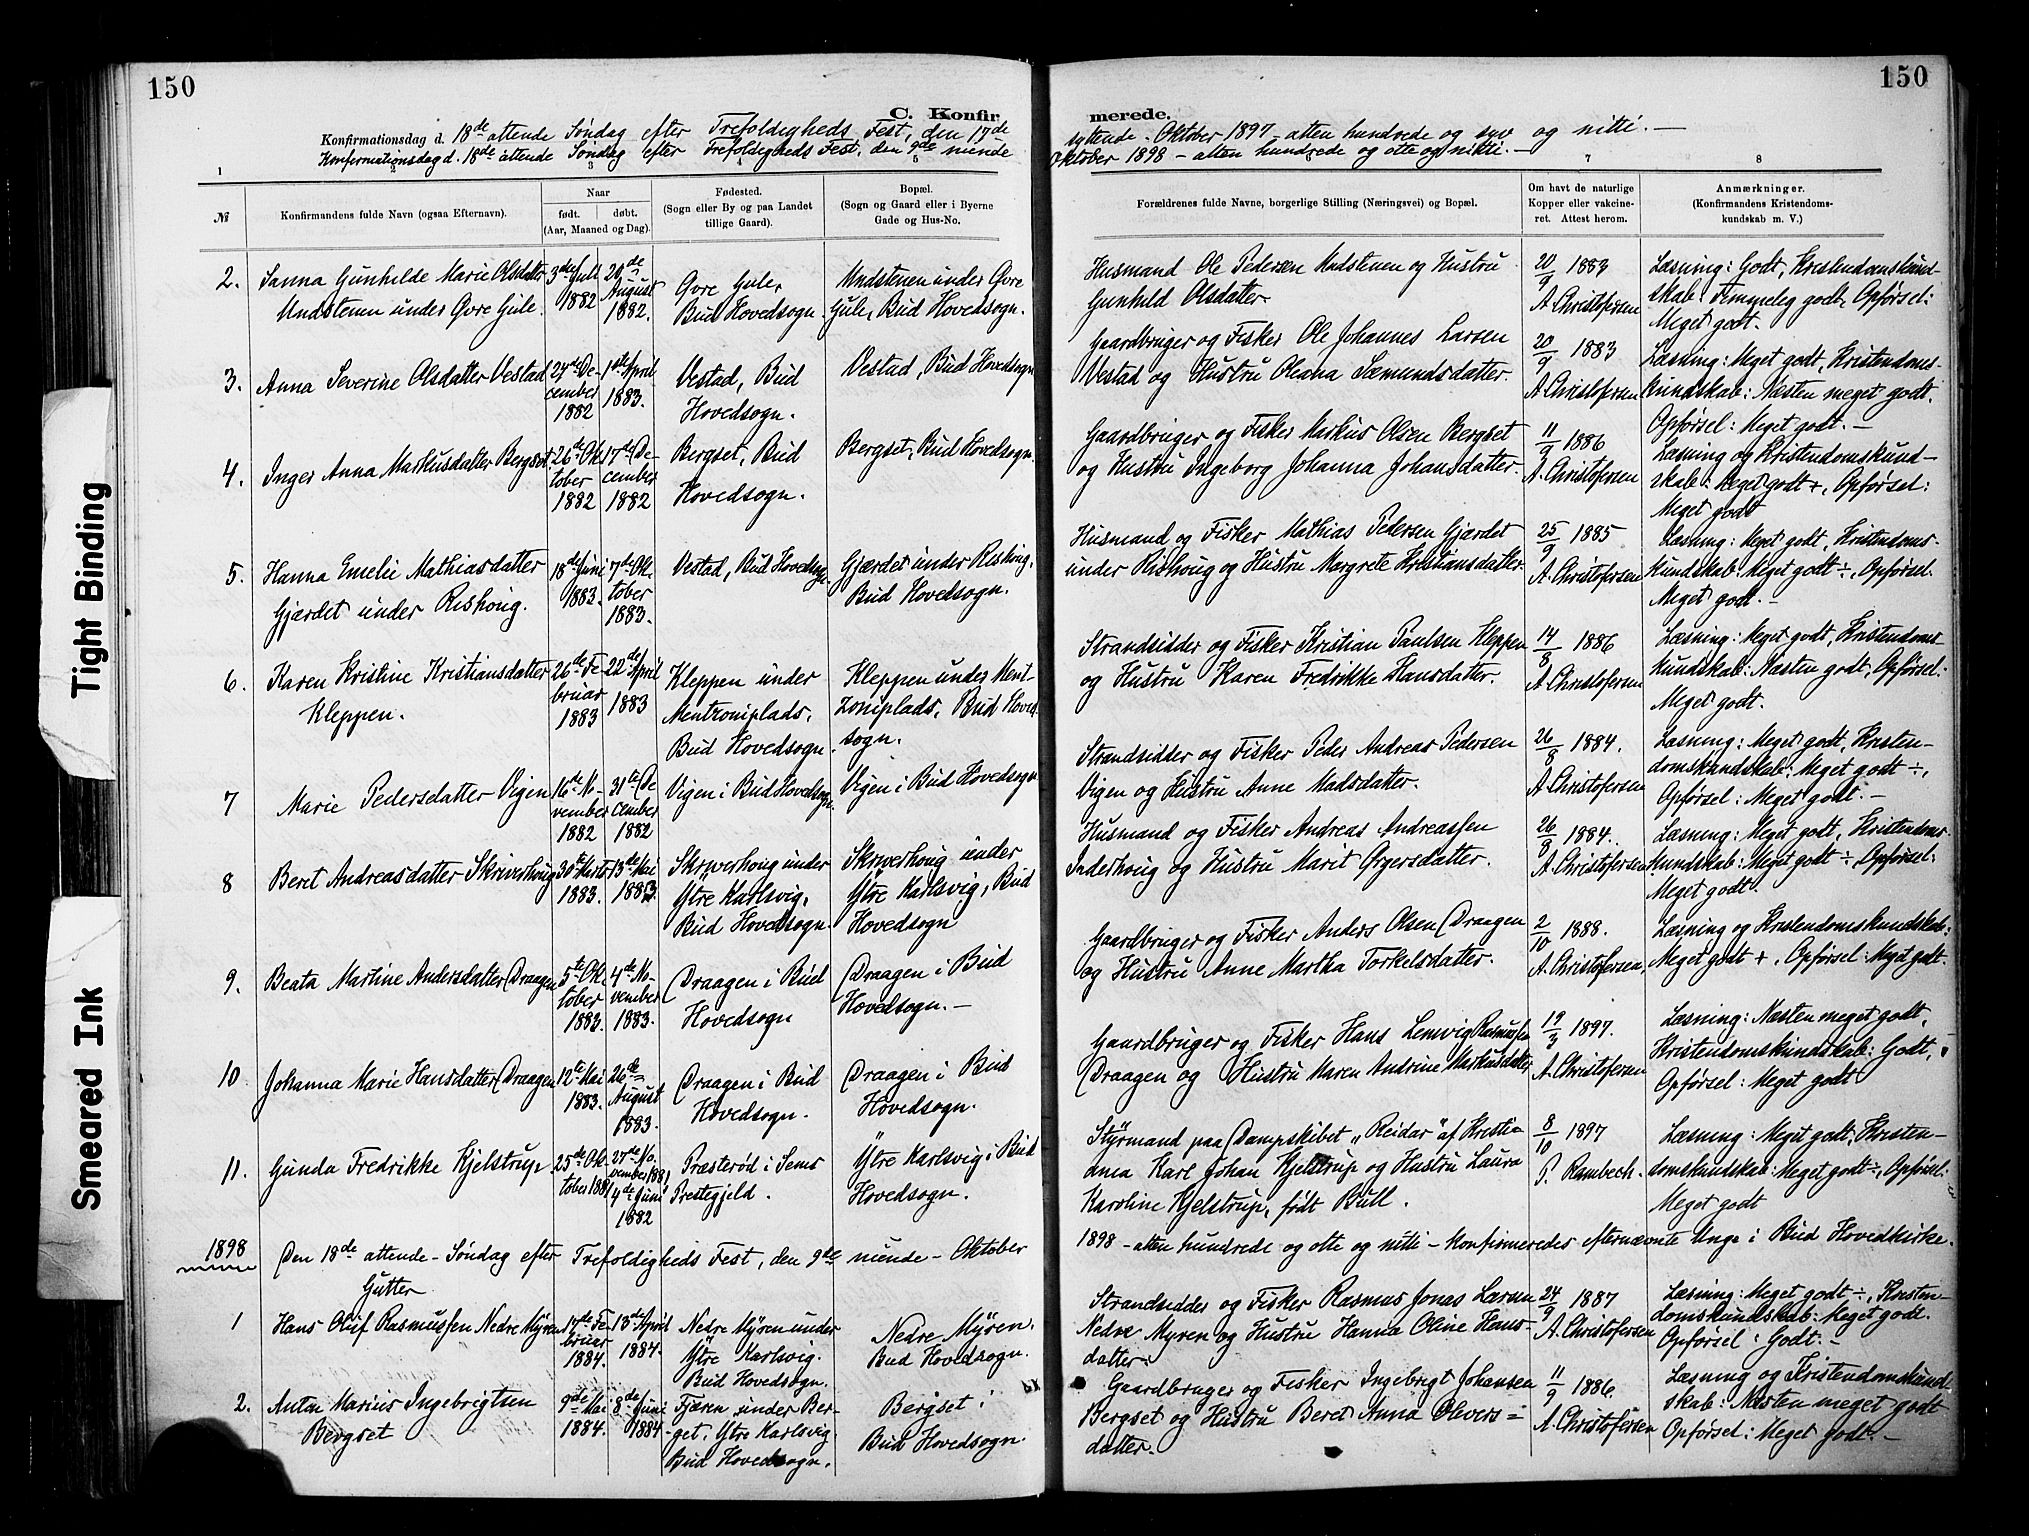 150
150
C. Konfir
merede.
Konfirmationsdag d. 18de attende Søndag efter Trefoldigheds Fest, den 17de
syttende - Oktober 1897 - atten hundrede og syv og nitti. -
Konfirmationsdag d. 18de attende Søndag efter Trefoldigheds Fest, den 9de niende
Oktober 1898 - atten hundrede og otte og nitti. -
1 2 3 4 5
7 8
№
Konfirmandens fulde Navn (ogsaa Efternavn).
Naar
født. døbt.
(Aar, Maaned og Dag).
Fødested.
(Sogn eller By og paa Landet
tillige Gaard).
Bopæl.
(Sogn og Gaard eller i Byerne
Gade og Hus-No.
Forældrenes fulde Navne, borgerlige Stilling (Næringsvei) og Bopæl.
Om havt de naturlige
Kopper eller vakcine-
ret. Attest herom.
Anmærkninger.
(Konfirmandens Kristendoms-
kundskab m. V.)
2. Sanna Gunhilde Marie Olsdatter
Undstenen under Øvre Gule.
3die Juli
1882
20de
August
1882.
Øvre Gule,
Bud Hovedsogn.
Undstenen under Øvre
Gule, Bud Hovedsogn.
Husmand Ole Pedersen Undstenen og Hustru
Gunhild Olsdatter.
20/9 1883
A. Christofersen
Læsning: Godt, Kristendomskund-
skab: Temmelig godt, Opførsel:
Meget godt.
3. Anna Severine Olsdatter Vestad
24de De-
cember
1882
1ste April
1883.
Vestad, Bud
Hovedsogn.
Vestad, Bud Hovedsogn
Gaardbruger og Fisker Ole Johannes Larsen
Vestad og Hustru Oleana Sæmundsdatter.
20/9 1883
A. Christofersen
Læsning: Meget godt, Kristendoms-
kundskab: Næsten meget godt.
Opførsel: Meget godt. -
4. Inger Anna Markusdatter Bergset
26de Ok
tober
1882
17de De-
cember
1882
Bergset, Bud
Hovedsogn.
Bergset, Bud Hovedsogn.
Gaardbruger og Fisker Markus Olsen Bergset
og Hustru Ingeborg Johanna Johansdatter.
11/9 1886
A. Christofersen
Læsning og Kristendomskund-
skab: Meget godt +, Opførsel:
Meget godt
5. Hanna Emelie Mathiasdatter
Gjærdet under Rishoug.
18de Juni
1883.
7de Ok-
tober
1883.
Vestad, Bud Hovedsogn
Gjærdet under Rishoug.
Bud Hovedsogn.
Husmand og Fisker Mathias Pedersen Gjærdet
under Rishoug og Hustru Margrete Kristiansdatter
25/9 1885
A. Christofersen
Læsning: Meget godt, Kristendoms-
kundskab: Meget godt ÷, Opførsel.
Meget godt. -
6. Karen Kristine Kristiansdatter
Kleppen.
26de Fe
bruar
1883
22de April
1883
Kleppen under
Mentzoniplads,
Bud Hovedsogn.
Kleppen under Ment-
zoniplads, Bud Hoved
sogn.
Strandsidder og Fisker Kristian Paulsen Kleppen
og Hustru Karen Fredrikke Hansdatter.
14/8 1886
A. Christofersen
Læsning: Meget godt, Kristendoms
kundskab: Næsten godt, Opførsel:
Meget godt.
7 Marie Pedersdatter Vigen
16de No-
vember
1882
31te De
cember
1882
Vigen i Bud Hovedsogn.
Vigen i Bud Hovedsogn
Strandsidder og Fisker Peder Andreas Pedersen
Vigen og Hustru Anne Madsdatter.
26/8 1884.
A. Christofersen
Læsning: Meget godt, Kristen-
domskundskab: Meget godt ÷,
Opførsel: Meget godt. -
8 Beret Andreasdatter Skriverhoug
30te Marts
1883.
13de Mai
1883
Skriverhoug under
Ytre Karlsvig,
Bud Hovedsogn.
Skriverhoug under
Ytre Karlsvig, Bud
Hovedsogn
Husmand og Fisker Andreas Andreassen
Inderhoug og Hustru Marit Ørgersdatter.
26/8 1884.
A. Christofersen
Læsning: Meget godt, Kristendoms
kundskab: Meget godt ÷, Opførsel:
Meget godt.
9. Beata Martine Andersdatter Draagen
5te Ok-
tober
1883
4de No-
vember
1883.
Draagen i Bud
Hovedsogn
Draagen i Bud
Hovedsogn. -
Gaardbruger og Fisker Anders Olsen Draagen
og Hustru Anne Martha Torkelsdatter.
2/10 1888.
A. Christofersen,
Læsning og Kristendomskundskab:
Meget godt +, Opførsel: Meget godt.
10 Johanna Marie Hansdatter Draagen
12te Mai
1883.
26de
August
1883.
Draagen i Bud
Hovedsogn.
Draagen i Bud
Hovedsogn.
Gaardbruger og Fisker Hans Lemvig Rasmussen
Draagen og Hustru Maren Andrine Markusdatter
19/3 1897.
A. Christofersen
Læsning: Næsten meget godt,
Kristendomskundskab: Godt,
Opførsel: Meget godt
11. Gunda Fredrikke Kjelstrup
25de Ok-
tober 1881
27de No-
vember 1881
4de Juni
1882
Præsterød i Sems
Prestegjeld.
Ytre Karlsvig i Bud
Hovedsogn.
Styrmand paa Dampskibet "Reidar" af Kristia
dnia Karl Johan Kjelstrup og Hustru Laura
Karoline Kjelstrup, født Bull.
8/10 1897
P. Rambech.
Læsning: Meget godt, Kristen-
domskundskab: Meget godt ÷, Opførsel:
Meget godt
1898 Den 18de attende - Søndag efter Trefoldigheds Fest, den 9de niende - Oktober
1898 - atten hundrede og otte og nitti - konfirmeredes efternævnte Unge i Bud Hovedkirke.
Gutter
1 Hans Oluf Rasmussen Nedre Myren
17de Fe
bruar
1884.
13de April
1884.
Nedre Myren under
Ytre Karlsvig.
Bud Hovedsogn.
Nedre Myren.
Bud Hovedsogn.
Strandsidder og Fisker Rasmus Jonas Larsen
Nedre Myren og Hustru Hanna Oline Hans-
datter.
24/9 1887
A. Christofersen
Læsning: Meget godt ÷, Kristen-
domskundskab: Meget godt.
Opførsel: Godt. -
2. Anton Marius Ingebrigtsen
Bergset
9de Mai
1884.
8de Juni
1884.
Fjæren under Ber-
get, Ytre Karlsvig.
Bud Hovedsogn.
Bergset i
Bud Hovedsogn.
Gaardbruger og Fisker Ingebrigt Johansen
Bergset og Hustru Beret Anna Olivers=
datter.
11/9 1886.
A. Christofersen
Læsning og Kristendomskund-
skab: Næsten meget godt
Opførsel: Meget godt. -
Tight Binding
Smeared Ink